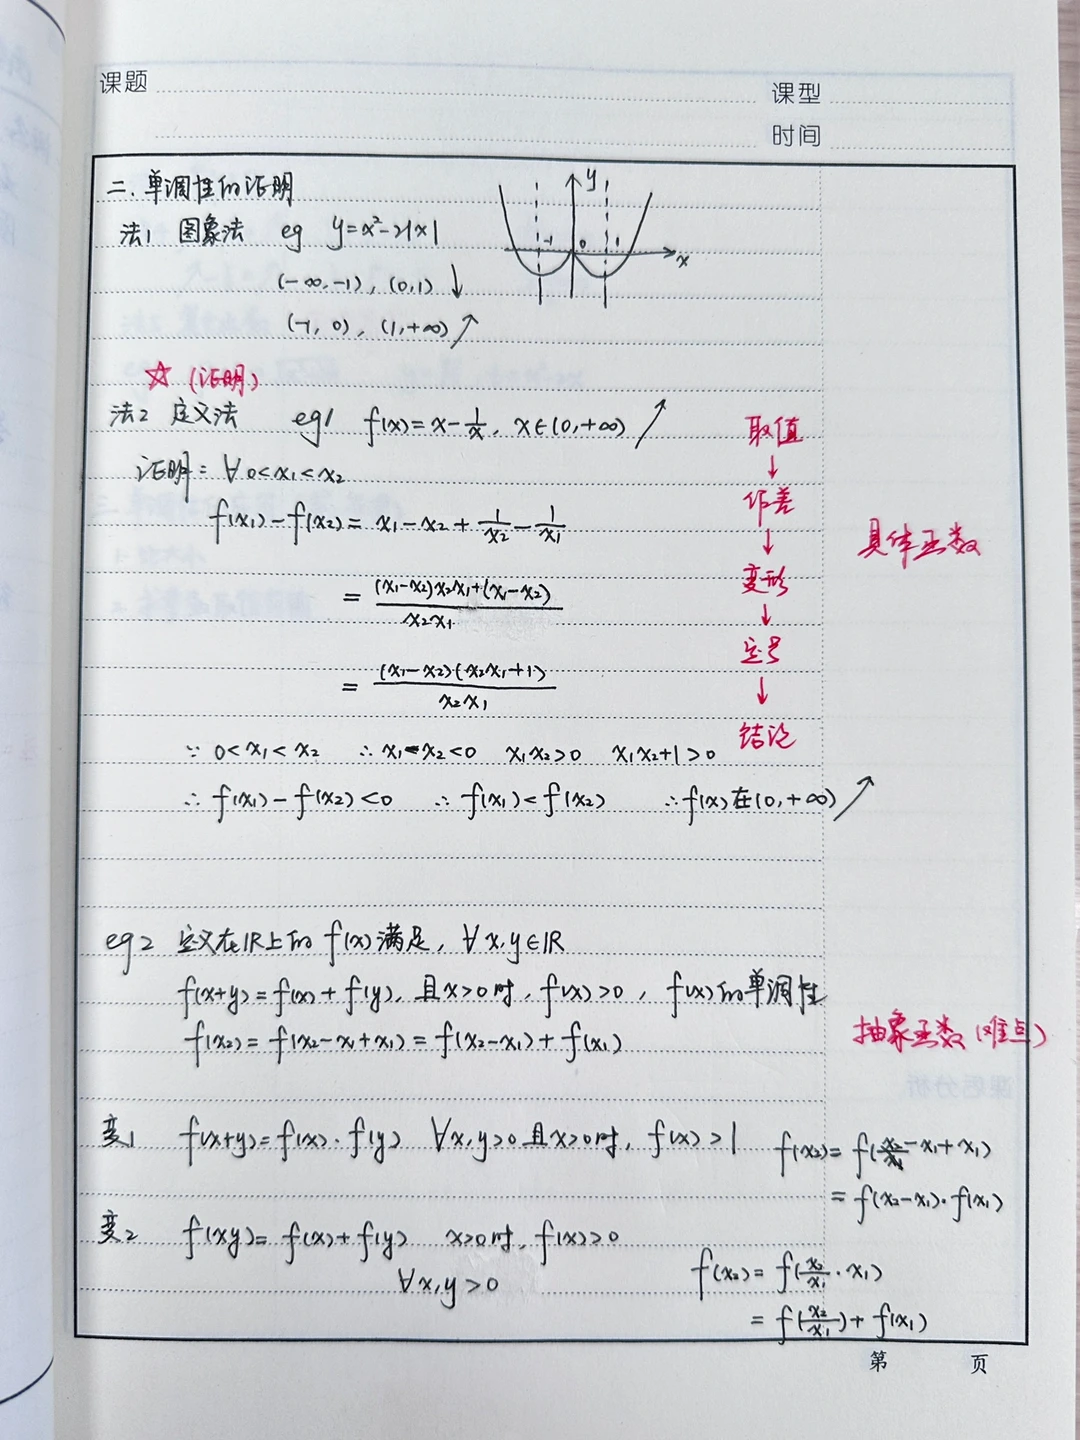 课题
课型
时间
二. 单调性的证明
法1 图象法 eg y=x²-2|x|
y
-1 0 1 x
(-∞,-1), (0,1) ↓
(-1, 0), (1,+∞) ↗
☆ (证明)
法2 定义法 eg1 f(x)=x-1/x, x∈(0,+∞) ↗
证明: ∀ 0<x₁<x₂
f(x₁)-f(x₂)= x₁-x₂+1/x₂-1/x₁
= ((x₁-x₂)x₂x₁+(x₁-x₂))/(x₂x₁)
= ((x₁-x₂)(x₂x₁+1))/(x₂x₁)
∵ 0<x₁<x₂ ∴ x₁-x₂<0 x₁x₂>0 x₁x₂+1>0
∴ f(x₁)-f(x₂)<0 ∴ f(x₁)<f(x₂) ∴ f(x)在(0,+∞) ↗
取值
↓
作差
↓
变形
↓
定号
↓
结论
具体函数
eg2 定义在ℝ上的 f(x)满足, ∀ x,y∈ℝ
f(x+y)=f(x)+f(y), 且x>0时, f(x)>0, f(x)的单调性
f(x₂)= f(x₂-x₁+x₁)=f(x₂-x₁)+f(x₁)
抽象函数(难点)
变1 f(x+y)=f(x)·f(y) ∀x,y>0 且x>0时, f(x)>1
f(x₂)= f(x₂-x₁+x₁)
= f(x₂-x₁)·f(x₁)
变2 f(xy)= f(x)+f(y) x>0时, f(x)>0
∀x,y>0
f(x₂)= f(x₂/x₁·x₁)
= f(x₂/x₁)+f(x₁)
第 页